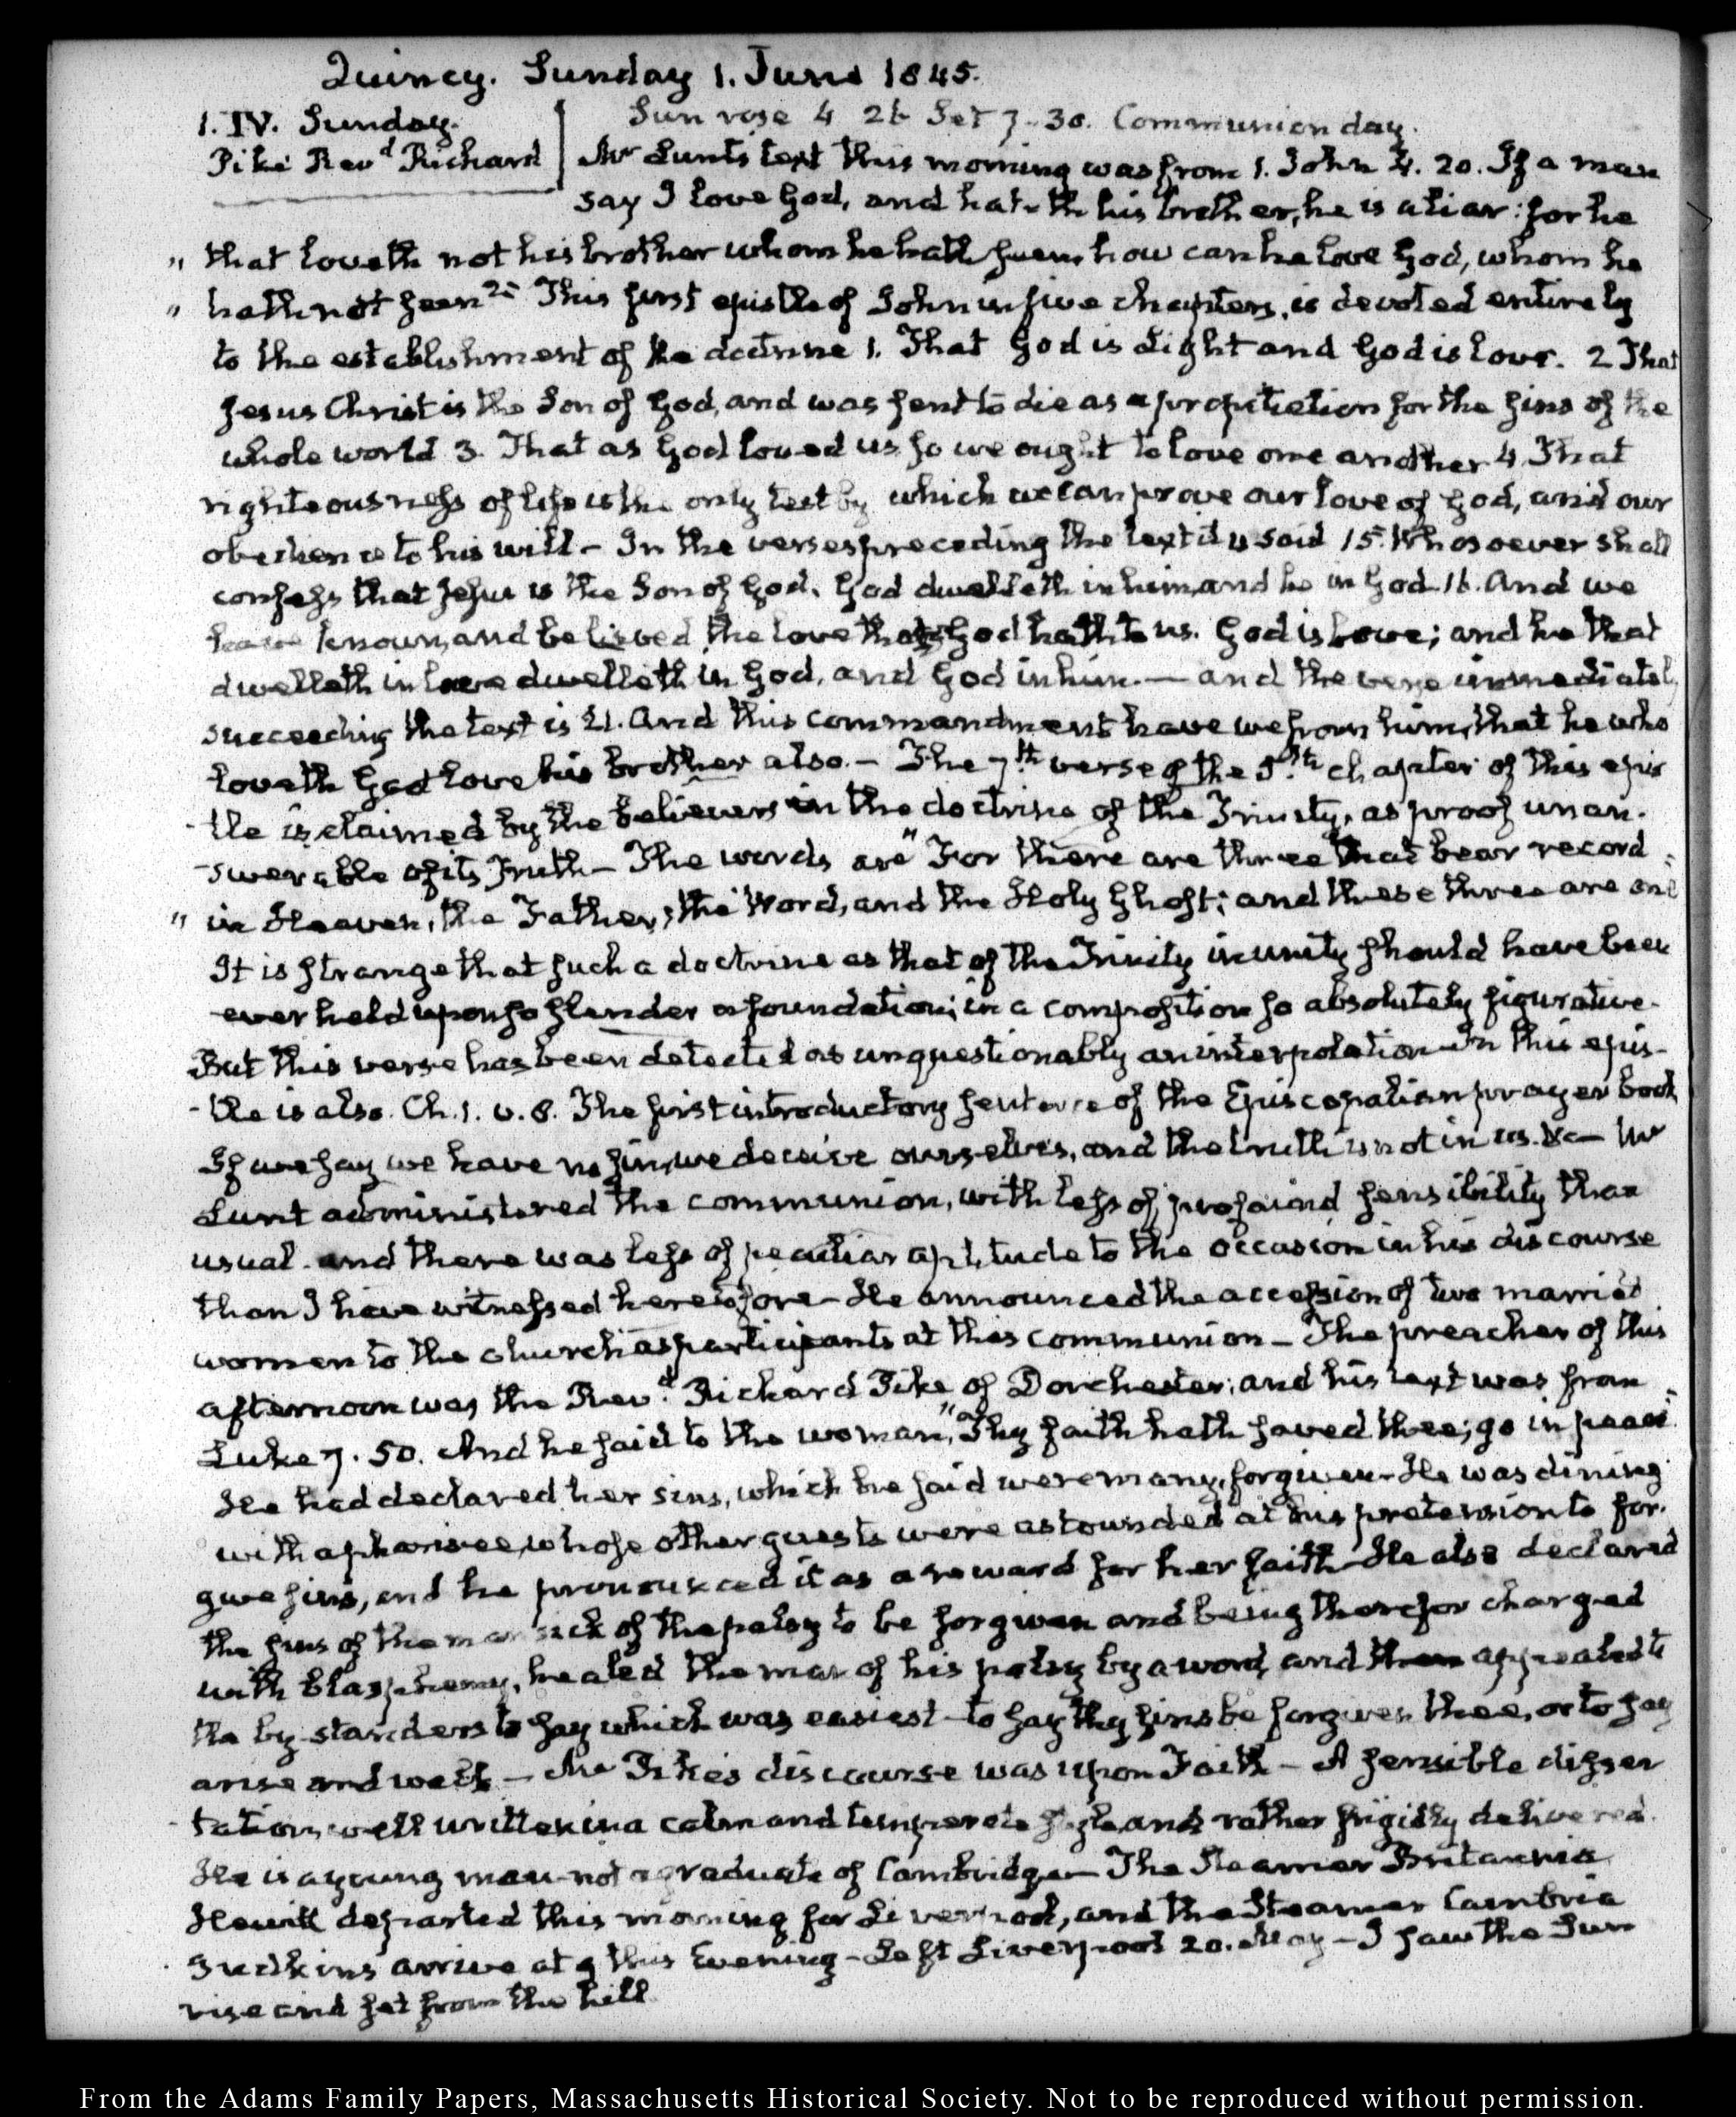 Quincy. Sunday 1. June 1845.
1. IV. Sunday.
Pike Revd Richard
Sun rose 4 26 Set 7-30. Communion day.
Mr Lunt's text this morning was from 1. John 4. 20. If a man
say I love God, and hateth his brother, he is a liar: for he
" that loveth not his brother whom he hath seen, how can he love God, whom he
" hath not seen? This first epistle of John in five chapters, is devoted entirely
to the establishment of the doctrine 1. That God is Light and God is love. 2 That
Jesus Christ is the Son of God, and was sent to die as a propitiation for the sins of the
whole world 3. That as God loved us so we ought to love one another 4. That
righteousness of life is the only test by which we can prove our love of God, and our
obedience to his will - In the verses preceding the text it is said 15. Whosoever shall
confess that Jesus is the Son of God, God dwelleth in him and he in God. 16. And we
have known, and believed the love that God hath to us. God is Love; and he that
dwelleth in love dwelleth in God, and God in him. — and the verse immediately
succeeding the text is 21. And this commandment have we from him, that he who
loveth God love his brother also. - The 7th verse of the 5th chapter of this epis
-tle is claimed by the believers in the doctrine of the Trinity, as proof unan-
-swerable of its Truth - The words are "For there are three that bear record
" in Heaven, the Father, the Word, and the Holy Ghost; and these three are one
It is strange that such a doctrine as that of the Trinity in unity should have been
ever held upon so slender a foundation; in a composition so absolutely figurative.
But this verse has been detected as unquestionably an interpolation - In this epis-
-tle is also. Ch. 1. v. 8. The first introductory sentence of the Episcopalian prayer book
If we say we have no sin, we deceive ourselves, and the truth is not in us. &c - Mr
Lunt administered the communion, with less of profound sensibility than
usual. and there was less of peculiar aptitude to the occasion in his discourse
than I have witnessed heretofore - He announced the accession of two married
women to the church as participants at this communion - The preacher of this
afternoon was the Revd. Richard Pike of Dorchester; and his text was from
Luke 7. 50. And he said to the woman, "Thy faith hath saved thee; go in peace.
He had declared her sins, which he said were many, forgiven - He was dining
with a pharisee, whose other guests were astounded at his pretension to for-
give sins, and he pronounced it as a reward for her faith - He also declared
the sins of the man sick of the palsy to be forgiven and being therefor charged
with blasphemy, healed the man of his palsy by a word, and then appealed to
the by-standers to say which was easiest - to say thy sins be forgiven thee, or to say
arise and walk - Mr Pike's discourse was upon Faith - A sensible disser
-tation, well written in a calm and temperate style, and rather frigidly delivered.
He is a young man not a graduate of Cambridge - The Steamer Britannia
Hewitt departed this morning for Liverpool, and the Steamer Cambria
Judkins arrive at 9 this Evening - Left Liverpool 20. May - I saw the Sun
rise and set from the hill
From the Adams Family Papers, Massachusetts Historical Society. Not to be reproduced without permission.